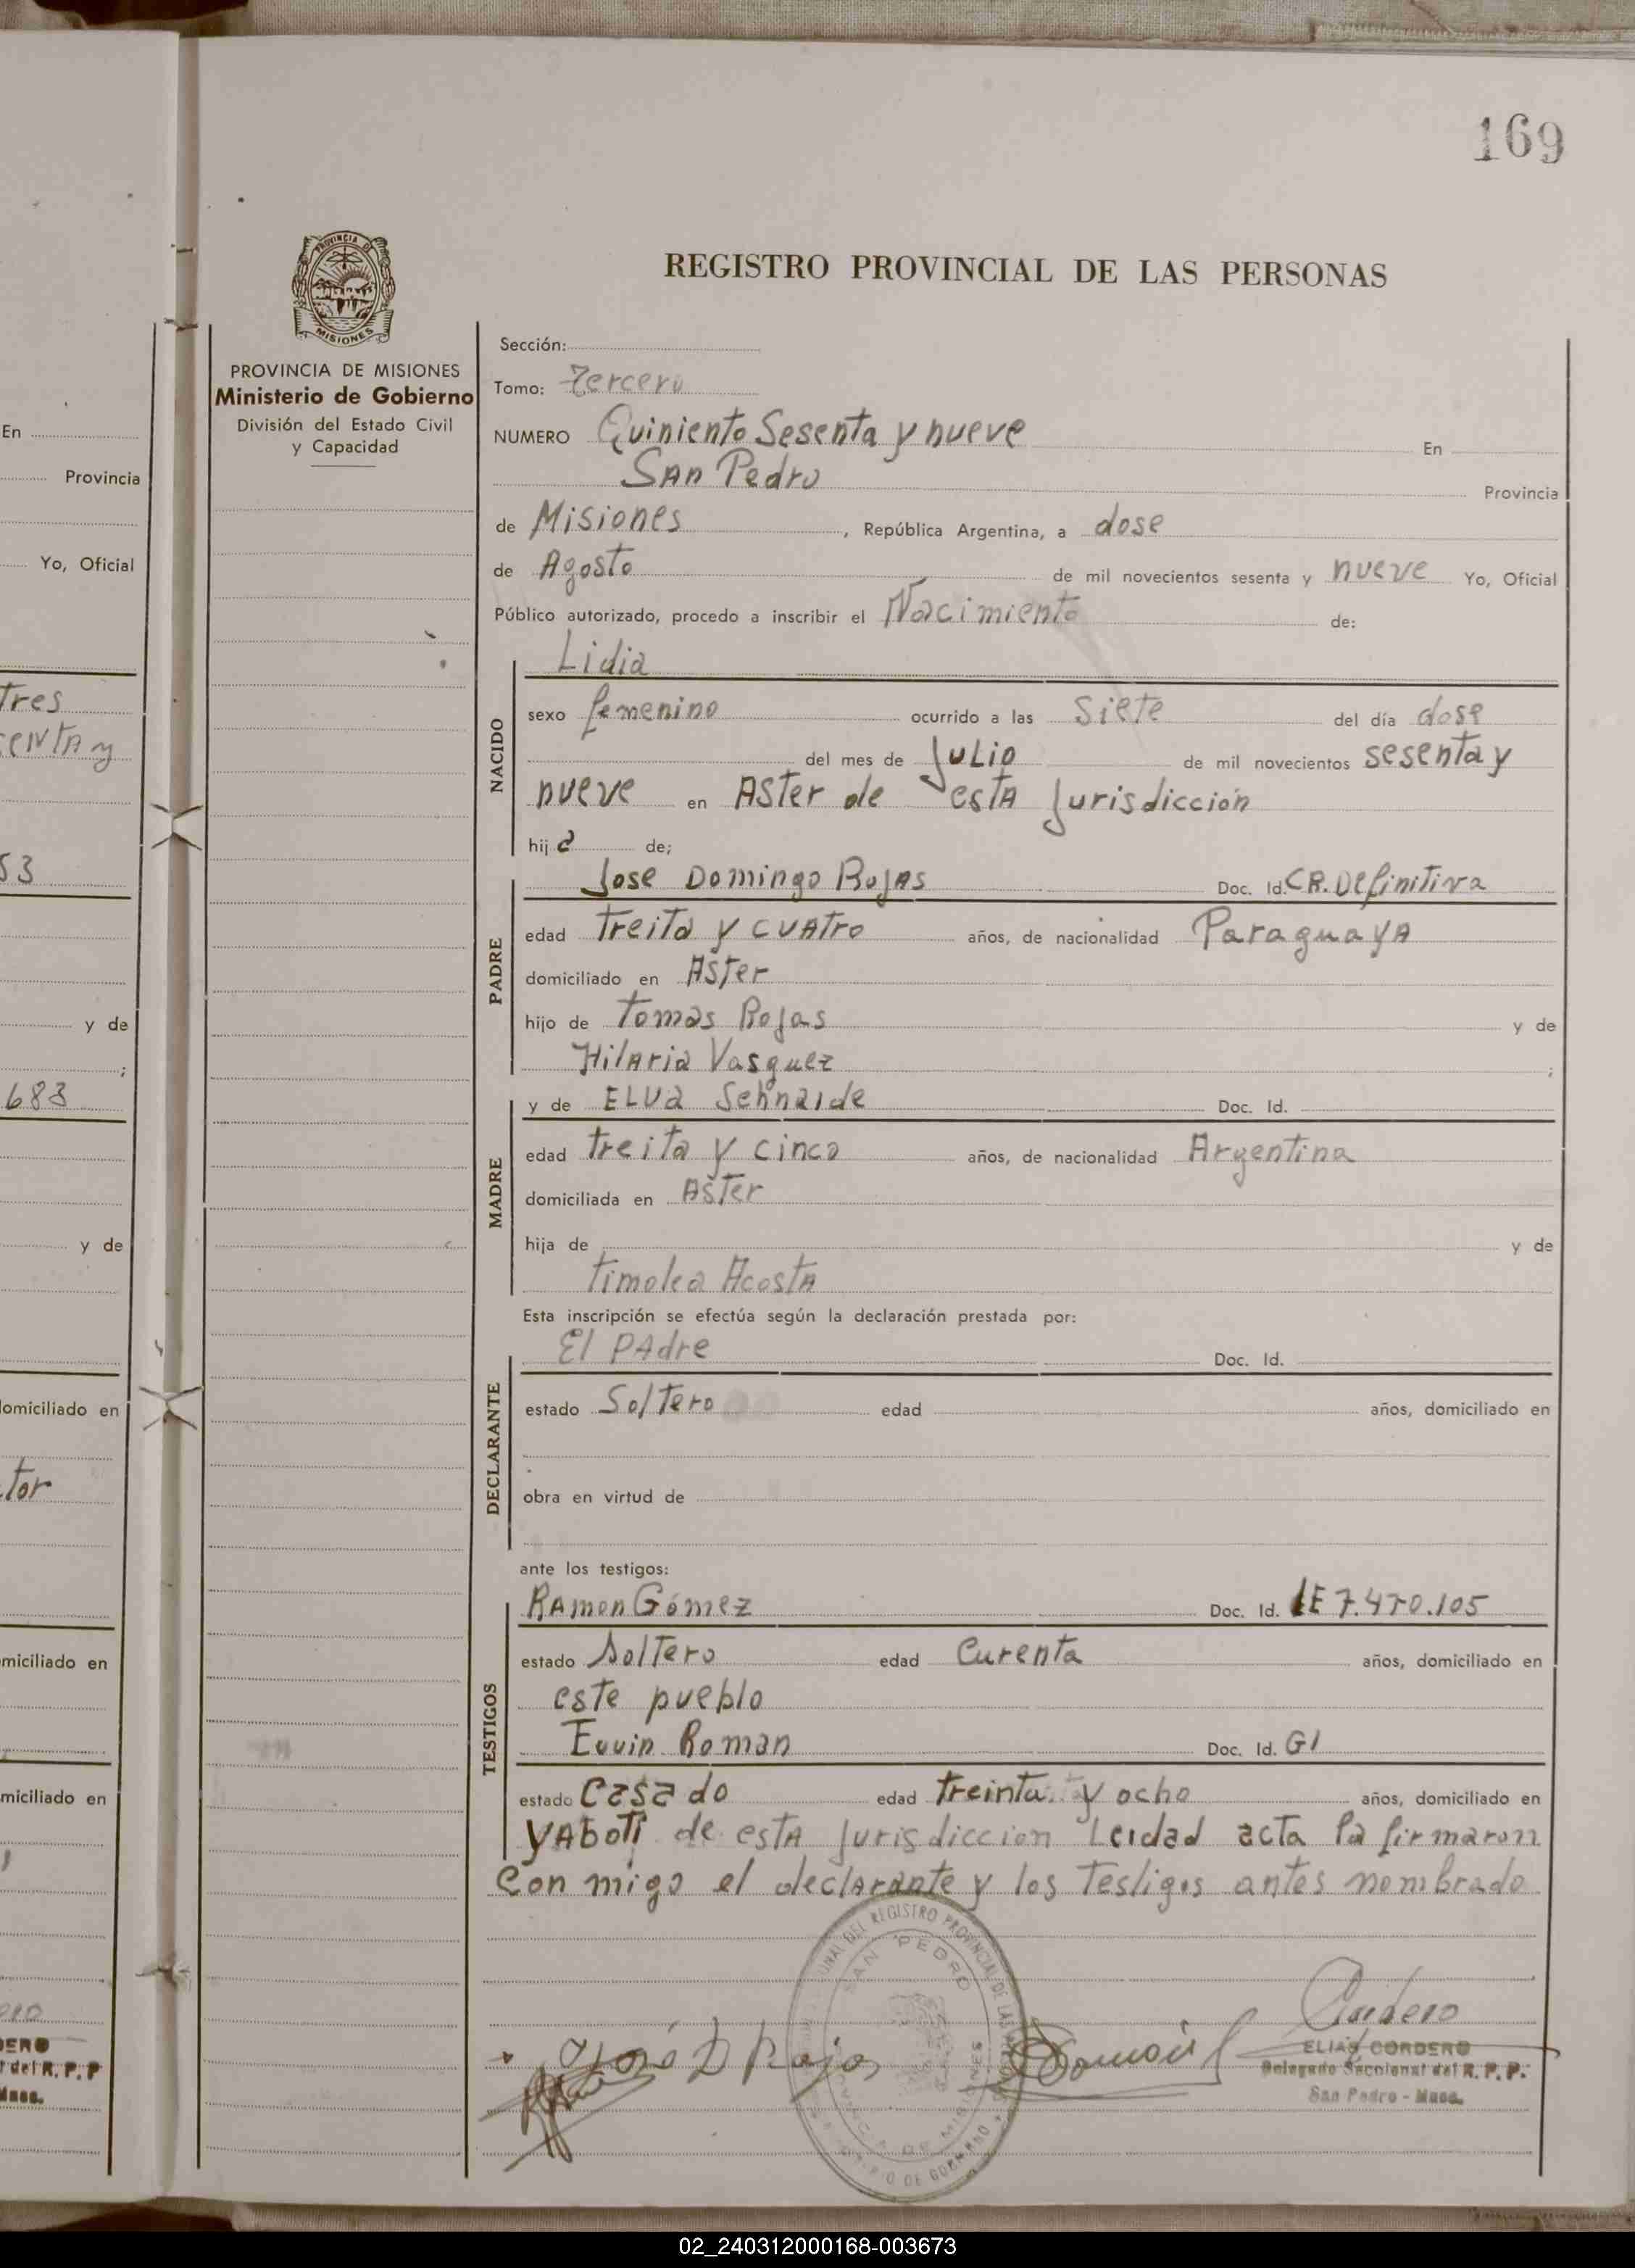 169
PROVINCIA DE
MISIONES
REGISTRO PROVINCIAL DE LAS PERSONAS
PROVINCIA DE MISIONES
Ministerio de Gobierno
División del Estado Civil
y Capacidad
En
Provincia
Yo, Oficial
Tres
53
y de
;
683
y de
domiciliado en
miciliado en
miciliado en
del R. P. P
Sección:
Tomo: Tercero
NUMERO Quiniento Sesenta y nueve En
San Pedro Provincia
de Misiones , República Argentina, a dose
de Agosto de mil novecientos sesenta y nueve Yo, Oficial
Público autorizado, procedo a inscribir el Nacimiento de:
Lidia
NACIDO
sexo femenino ocurrido a las Siete del día dose
del mes de Julio de mil novecientos sesenta y
nueve en Aster de esta Jurisdicción
hija de;
PADRE
Jose Domingo Rojas Doc. Id. CR. Definitiva
edad treita y cuatro años, de nacionalidad Paraguaya
domiciliado en Aster
hijo de Tomas Rojas y de
Hilaria Vasquez ;
MADRE
y de Elva Sehnaide Doc. Id.
edad treita y cinco años, de nacionalidad Argentina
domiciliada en Aster
hija de y de
Timolea Acosta
Esta inscripción se efectúa según la declaración prestada por:
DECLARANTE
El Padre Doc. Id.
estado Soltero edad años, domiciliado en
obra en virtud de
ante los testigos:
TESTIGOS
Ramon Gómez Doc. Id. LE 7.470.105
estado Soltero edad Curenta años, domiciliado en
este pueblo
Euvin Roman Doc. Id. GI
estado Casado edad treinta y ocho años, domiciliado en
Yaboti de esta Jurisdiccion Leidad acta la firmaron
Con migo el declarante y los Testigos antes nombrado
REGISTRO PROVINCIAL DE LAS
SAN PEDRO
PROVINCIA DE MISIONES
DE GOBIERNO
José D Rojas
Roman
Cordero
ELIAS CORDERO
Delegado Seccional del R. P. P.
San Pedro - Mnes.
02_240312000168-003673